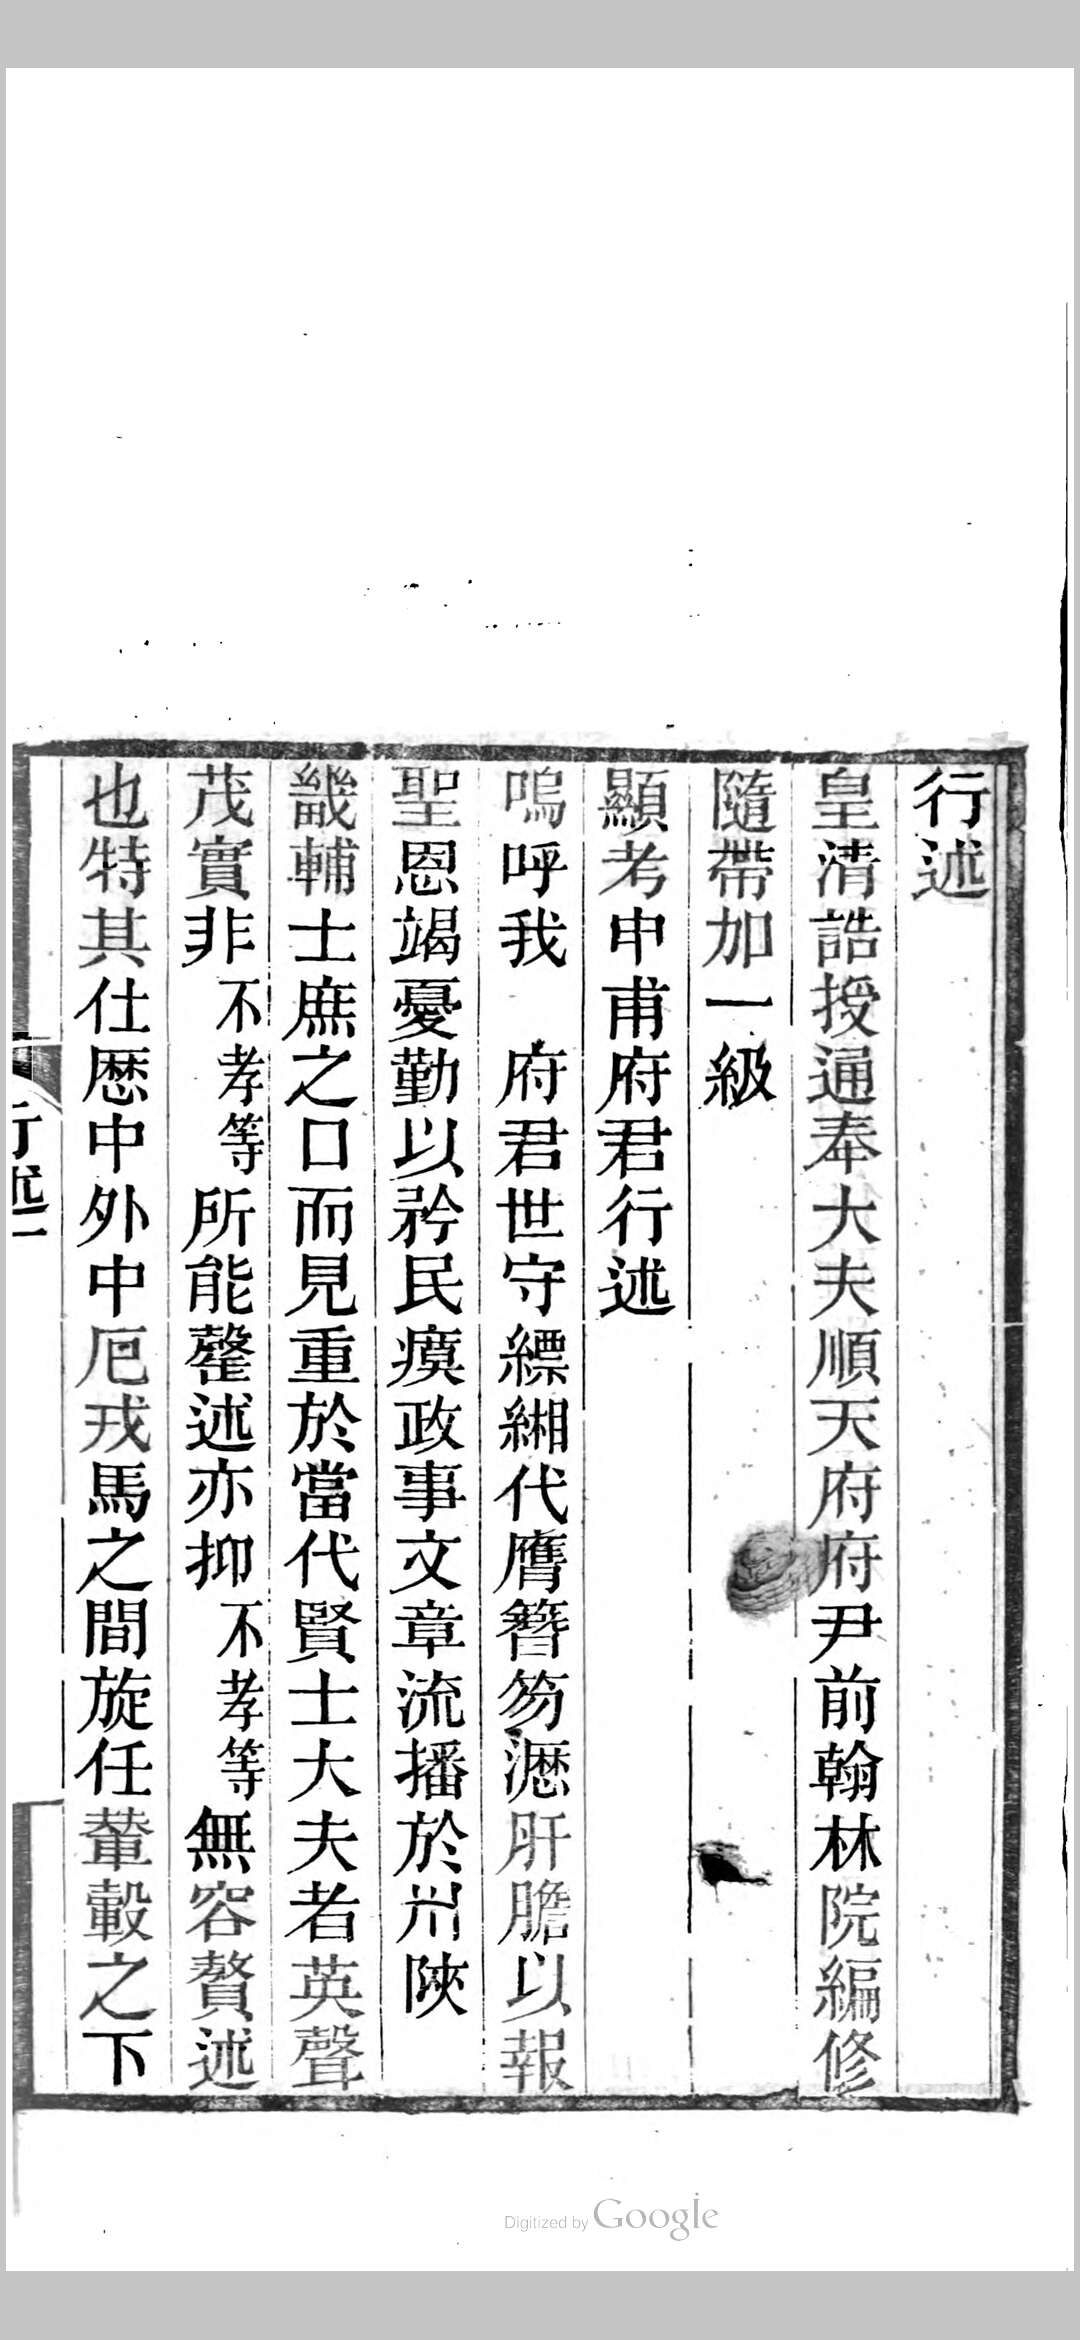 行述
皇清誥授通奉大夫順天府府尹前翰林院編修
隨帶加一級
顯考申甫府君行述
嗚呼我　府君世守縹緗代膺簪笏瀝肝膽以報
聖恩竭憂勤以矜民瘼政事文章流播於州陝
畿輔士庶之口而見重於當代賢士大夫者英聲
茂實非不孝等所能罄述亦抑不孝等無容贅述
也特其仕歷中外中厄戎馬之間旋任輦轂之下
行述 一
Digitized by Google